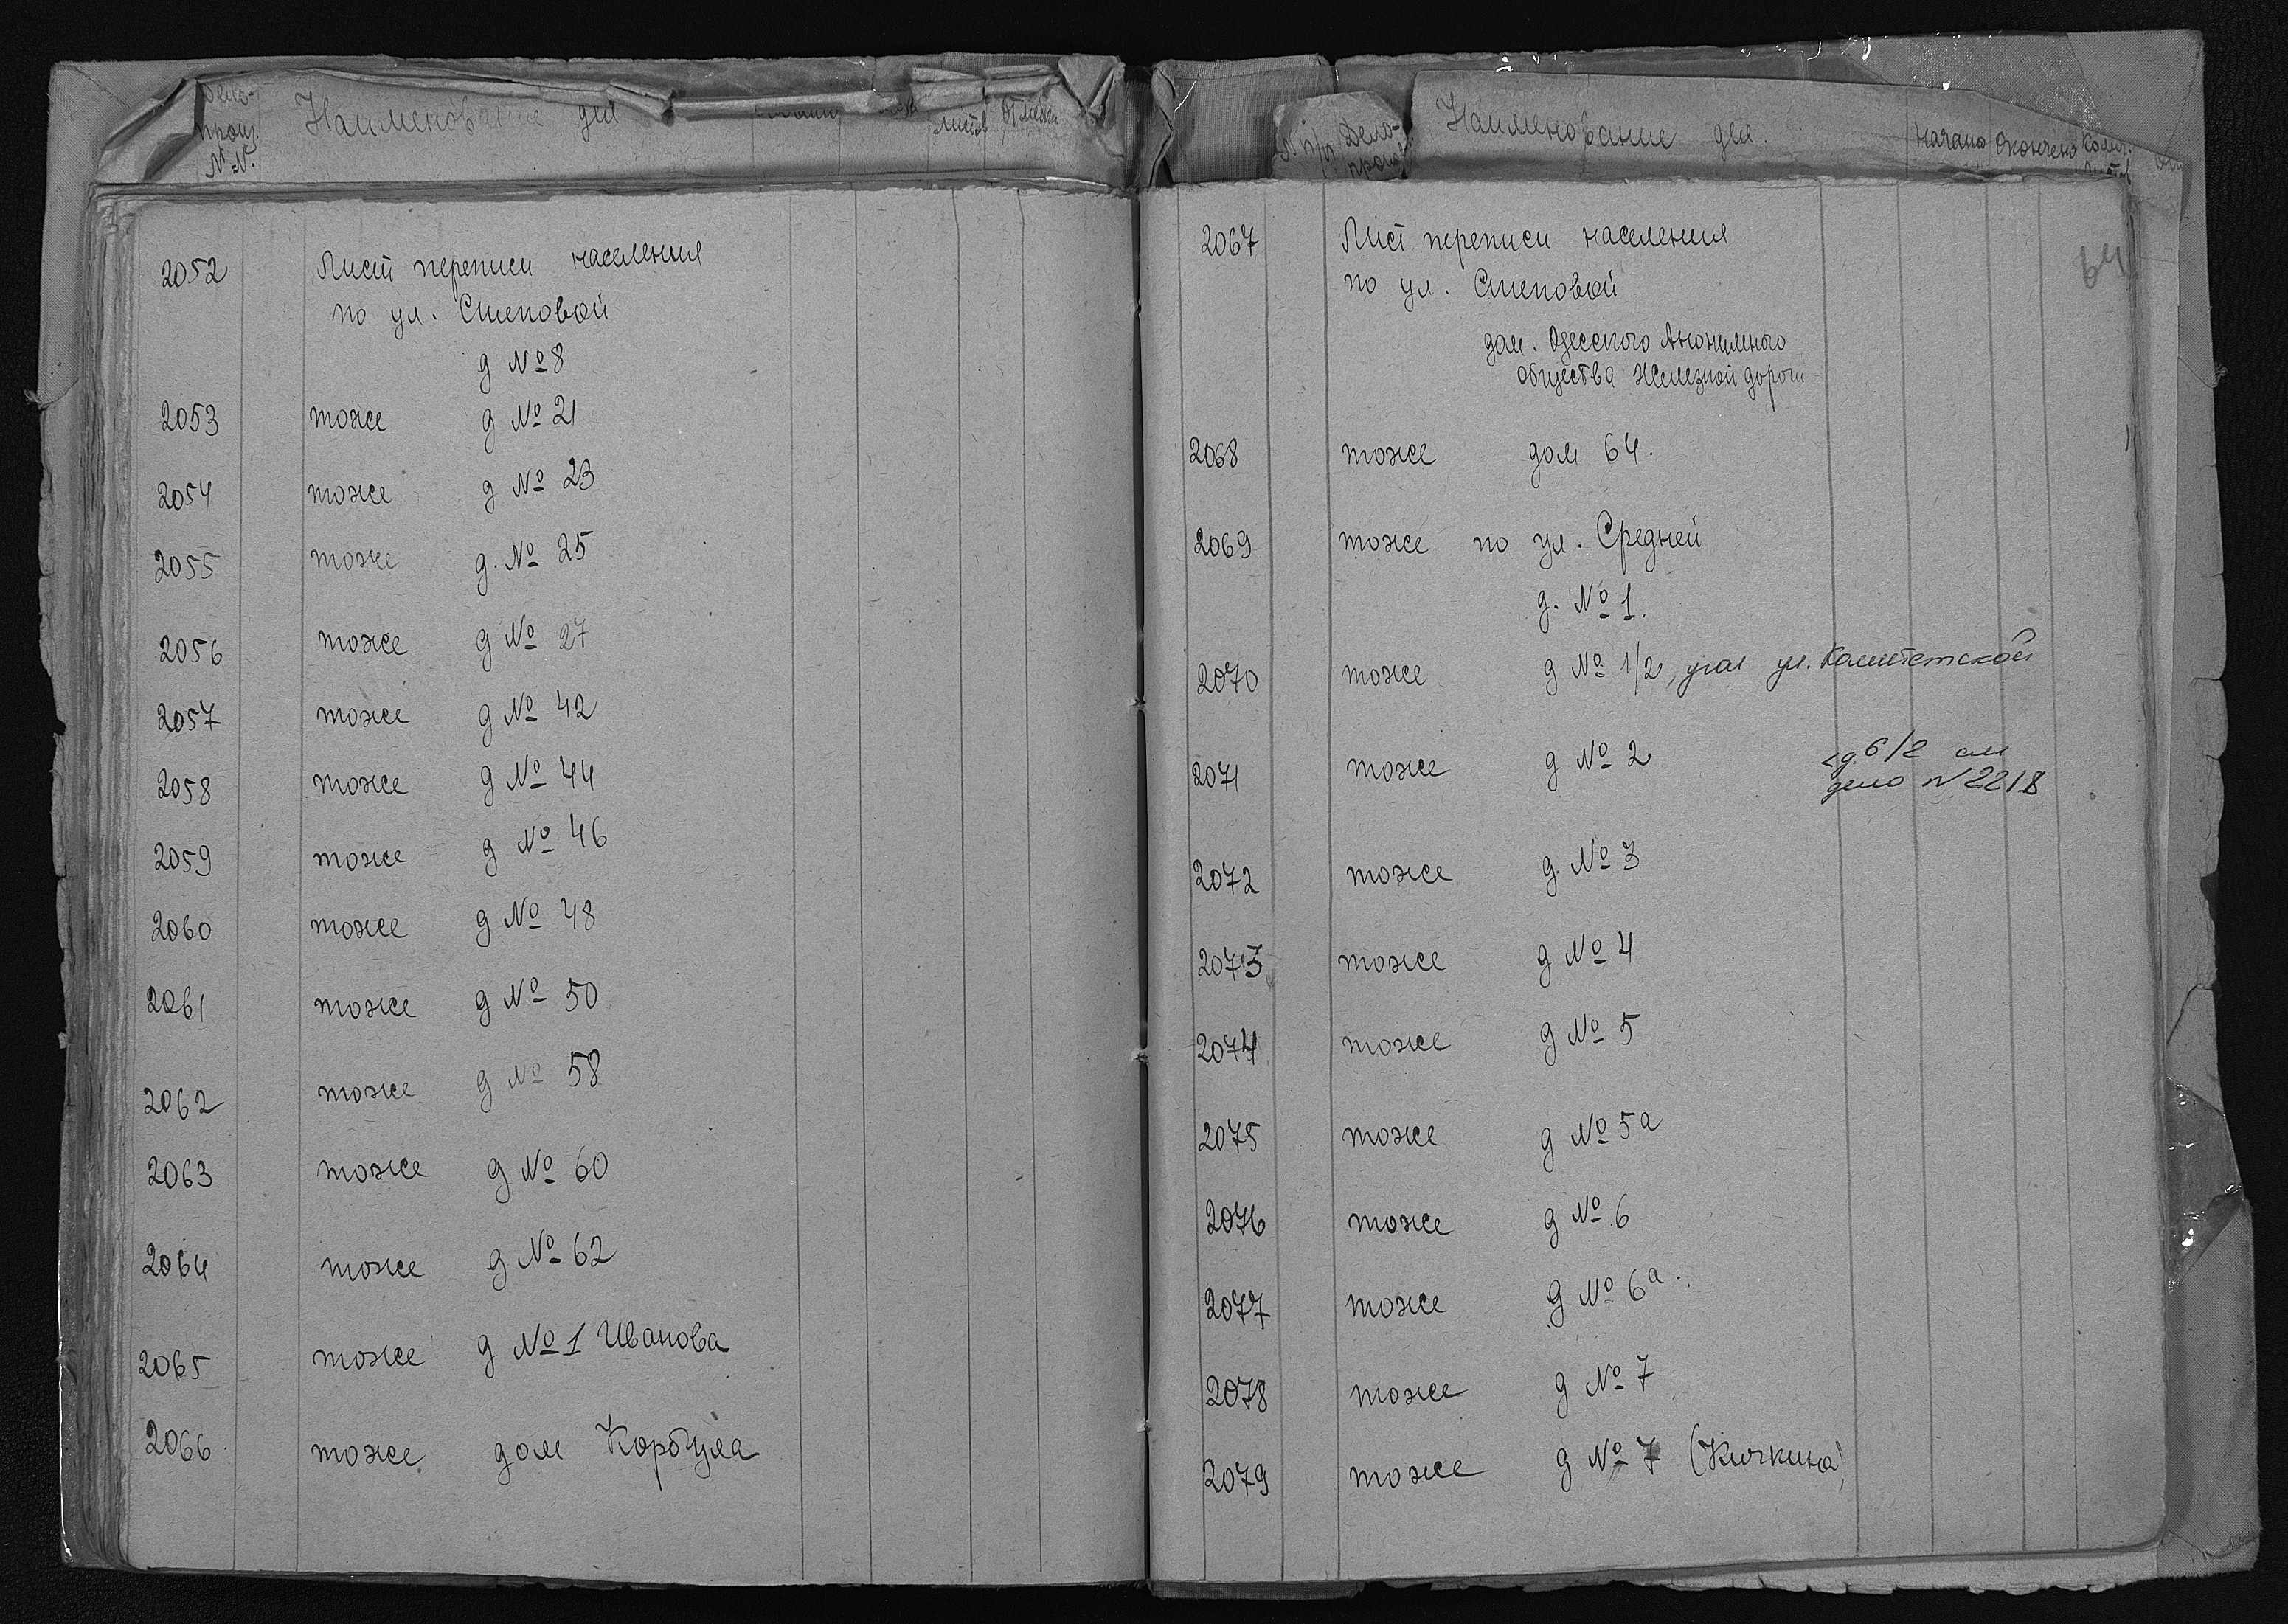 Дело-
произ.
N-N.
Наименование дел
листов
Отметки
2052 Лист переписи населения
по ул. Степовой
д № 8
2053 тоже д № 21
2054 тоже д № 23
2055 тоже д. № 25
2056 тоже д № 27
2057 тоже д № 42
2058 тоже д № 44
2059 тоже д № 46
2060 тоже д № 48
2061 тоже д № 50
2062 тоже д № 58
2063 тоже д № 60
2064 тоже д № 62
2065 тоже д № 1 Иванова
2066 тоже дом Корбула
№ п/п
Дело-
произ.
Наименование дел.
Начато Окончено Колич.
64
2067 Лист переписи населения
по ул. Степовой
дом. Одесского Анонимного
общества Железной дороги
2068 тоже дом 64.
2069 тоже по ул. Средней
д. № 1.
2070 тоже д № 1/2, угол ул. Комитетской
2071 тоже д № 2 д 6/2 см
дело N 2218
2072 тоже д. № 3
2073 тоже д № 4
2074 тоже д № 5
2075 тоже д № 5а
2076 тоже д № 6
2077 тоже д № 6а.
2078 тоже д № 7
2079 тоже д № 7 (Кичкина)